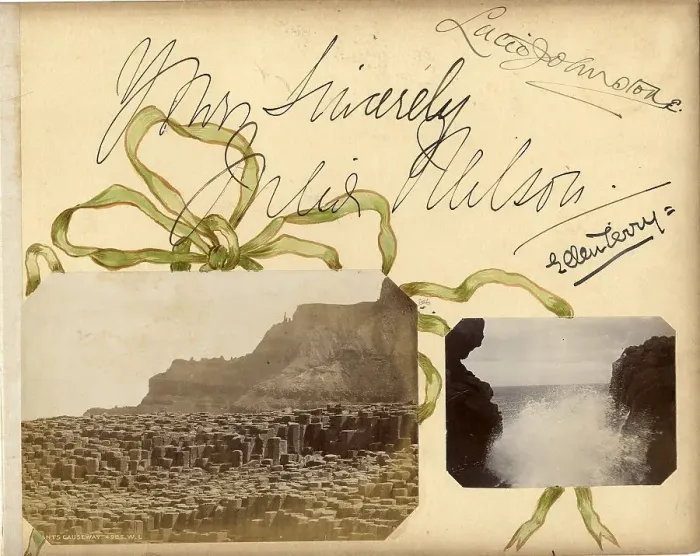 Lucie Johnstone.
Yours Sincerely
Julia Neilson.
Ellen Terry
NTS CAUSEWAY W.L